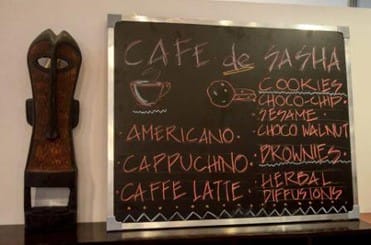 CAFE de SASHA
COOKIES
CHOCO-CHIP
SESAME
CHOCO WALNUT
BROWNIES
HERBAL
DIFFUSIONS
· AMERICANO ·
· CAPPUCHINO ·
· CAFFE LATTE ·